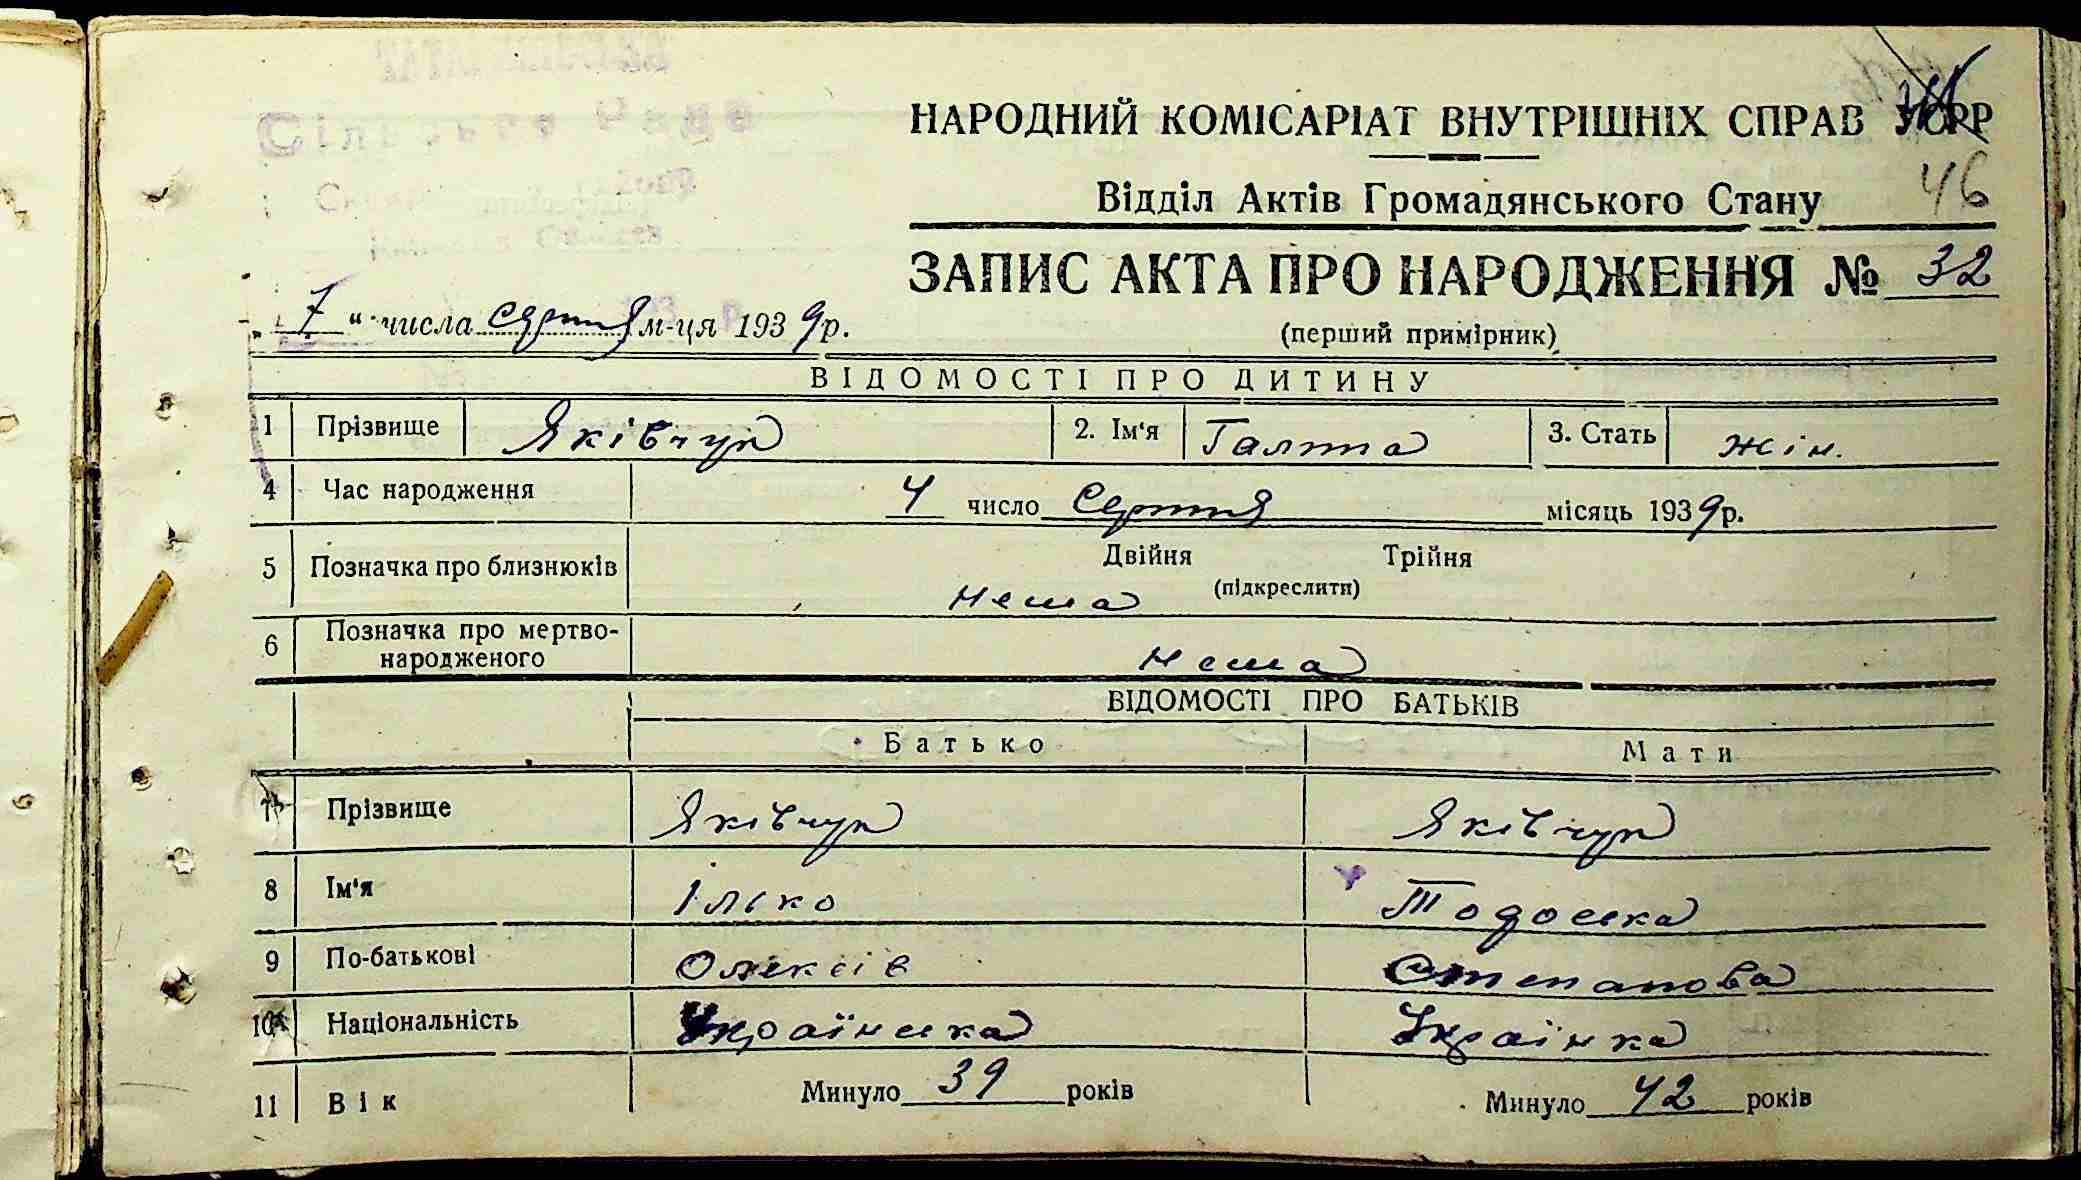 НАРОДНИЙ КОМІСАРІАТ ВНУТРІШНІХ СПРАВ УСРР
46
Відділ Актів Громадянського Стану
ЗАПИС АКТА ПРО НАРОДЖЕННЯ № 32
„ 7 “ числа серпня м-ця 1939 р.
(перший примірник)
ВІДОМОСТІ ПРО ДИТИНУ
1 Прізвище Яківчук 2. Ім'я Галина 3. Стать жін.
4 Час народження 4 число Серпня місяць 1939 р.
5 Позначка про близнюків Двійня Трійня
(підкреслити)
нема
6 Позначка про мертво-
народженого нема
ВІДОМОСТІ ПРО БАТЬКІВ
Батько Мати
7 Прізвище Яківчук Яківчук
8 Ім'я Ілько Тодоска
9 По-батькові Олексів Степанова
10 Національність Українська Українка
11 Вік Минуло 39 років Минуло 42 років